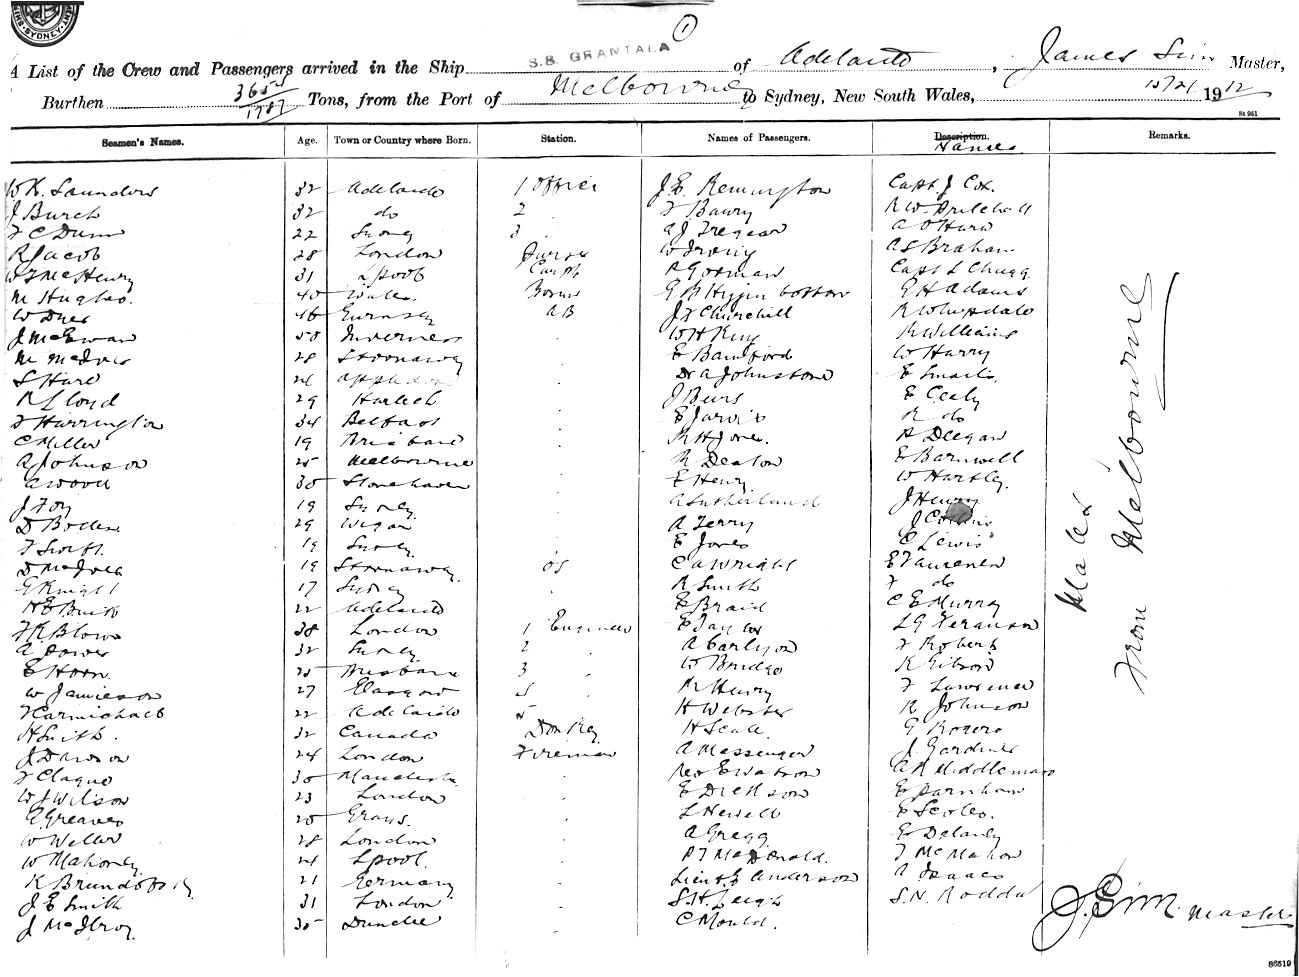 SYDNEY
1
S.S. GRANTALA
A List of the Crew and Passengers arrived in the Ship of Adelaide, James Sim Master,
Burthen 3655 / 1987 Tons, from the Port of Melbourne to Sydney, New South Wales, 1912
St 961
Seamen's Names. Age. Town or Country where Born. Station. Names of Passengers. Description. Remarks.
Names
W K. Saunders 32 Adelaide 1 Officer J. E. Remington Capt J Cox.
J Burch 32 do 2 R W Pritchall
F C Dunn 22 Sydney 3 A J Tregear A O'Hara
R Jacob 28 London Purser W Irving A S Braham
McHenry 31 Lpool Carptr R Gorman Capt L Chugg.
M Hughes. 40 Wales. Bosun G B Higginbottom G H Adams
W Dyer 46 Guernsey AB J F Churchill
J McEwan 50 Inverness W H King R Williams
M McIver 28 Stornoway E Bamford W Harry
S Hare Appledore Dr A Johnstone E Smails.
R Lloyd 29 Harlech J Beirs E Cealy
F Harrington 34 Belfast E Jarvis R do
C Miller 19 Brisbane R H Jones. P Deegan
A Johnson 25 Melbourne R Deaton E Barnwell
A Wood 30 Stonehaven E Henry W Hartley.
J Foy 19 Sydney A Sutherland J Henry
D Boden 29 Wigan A Terry J
F Swift. 19 Sydney E Jones C Lewis
D McIver 19 Stornoway. OS C A Wright
G Knight 17 Sydney R Smith F do
22 Adelaide E Braid C E Murray
F R Blows 38 London 1 Engineer E Taylor L G Ferguson
A Power 32 Sydney 2 A Carlyon F Robert
E Horn. 25 Brisbane 3 W Bridge R Gibson
W Jamieson 27 Glasgow R Harry F Lawrence
F Carmichael 22 Adelaide 5 H Webster R Johnson
H Smith. 32 Canada Donkey H Seale G Rogers
J Dawson 24 London Fireman A Messenger J Gardiner
F Clague 30 Manchester Rev E Watson A R Middlemass
W J Wilson 23 London E Dickson E Parnham
G Greaves 25 Grays. L Hewell E Scoles.
W Weller 28 London A Gregg E Delaney
W Mahoney 24 Lpool. P J McDonald. F McMahon
K 21 Germany Lieut Anderson A Isaacs
J E Smith 31 London S. H. Leigh S. N. Rodda
J McIlroy. 35 Dundee C Mould.
Males
From Melbourne
J. Sim Master
86519